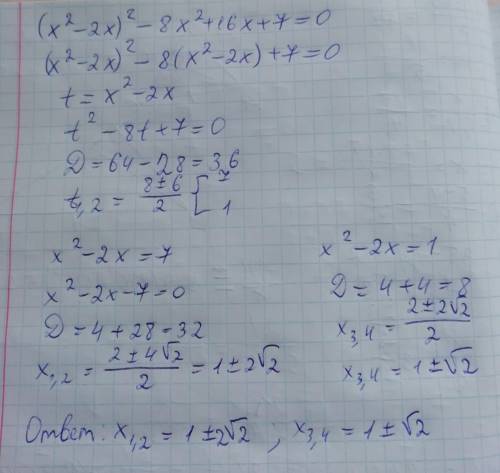 (x²-2x)²-8x²+16x+7=0
(x²-2x)²-8(x²-2x)+7=0
t=x²-2x
t²-8t+7=0
D=64-28=36
t₁,₂ = (8±6)/2 [ 7 1
x²-2x=7
x²-2x-7=0
D=4+28=32
x₁,₂ = (2±4√2)/2 = 1±2√2
x²-2x=1
D=4+4=8
x₃,₄ = (2±2√2)/2
x₃,₄ = 1±√2
Ответ: x₁,₂ = 1±2√2 ; x₃,₄ = 1±√2